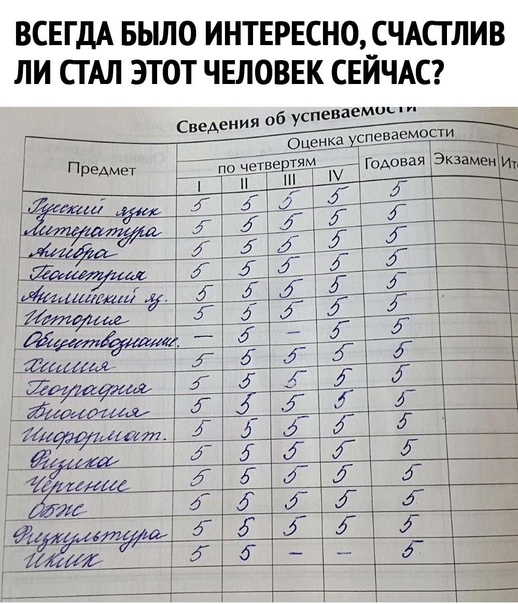 ВСЕГДА БЫЛО ИНТЕРЕСНО, СЧАСТЛИВ
ЛИ СТАЛ ЭТОТ ЧЕЛОВЕК СЕЙЧАС?
Сведения об успеваемости
Предмет Оценка успеваемости
по четвертям Годовая Экзамен Ит
I II III IV
Русский язык 5 5 5 5 5
Литература 5 5 5 5 5
Алгебра 5 5 5 5 5
Геометрия 5 5 5 5 5
Английский яз. 5 5 5 5 5
История 5 5 5 5 5
Обществознание. – 5 – 5 5
Химия 5 5 5 5 5
География 5 5 5 5 5
Биология 5 5 5 5 5
Информат. 5 5 5 5 5
Физика 5 5 5 5 5
Черчение 5 5 5 5 5
ОБЖ 5 5 5 5 5
Физкультура 5 5 5 5 5
ИКиК 5 5 – – 5